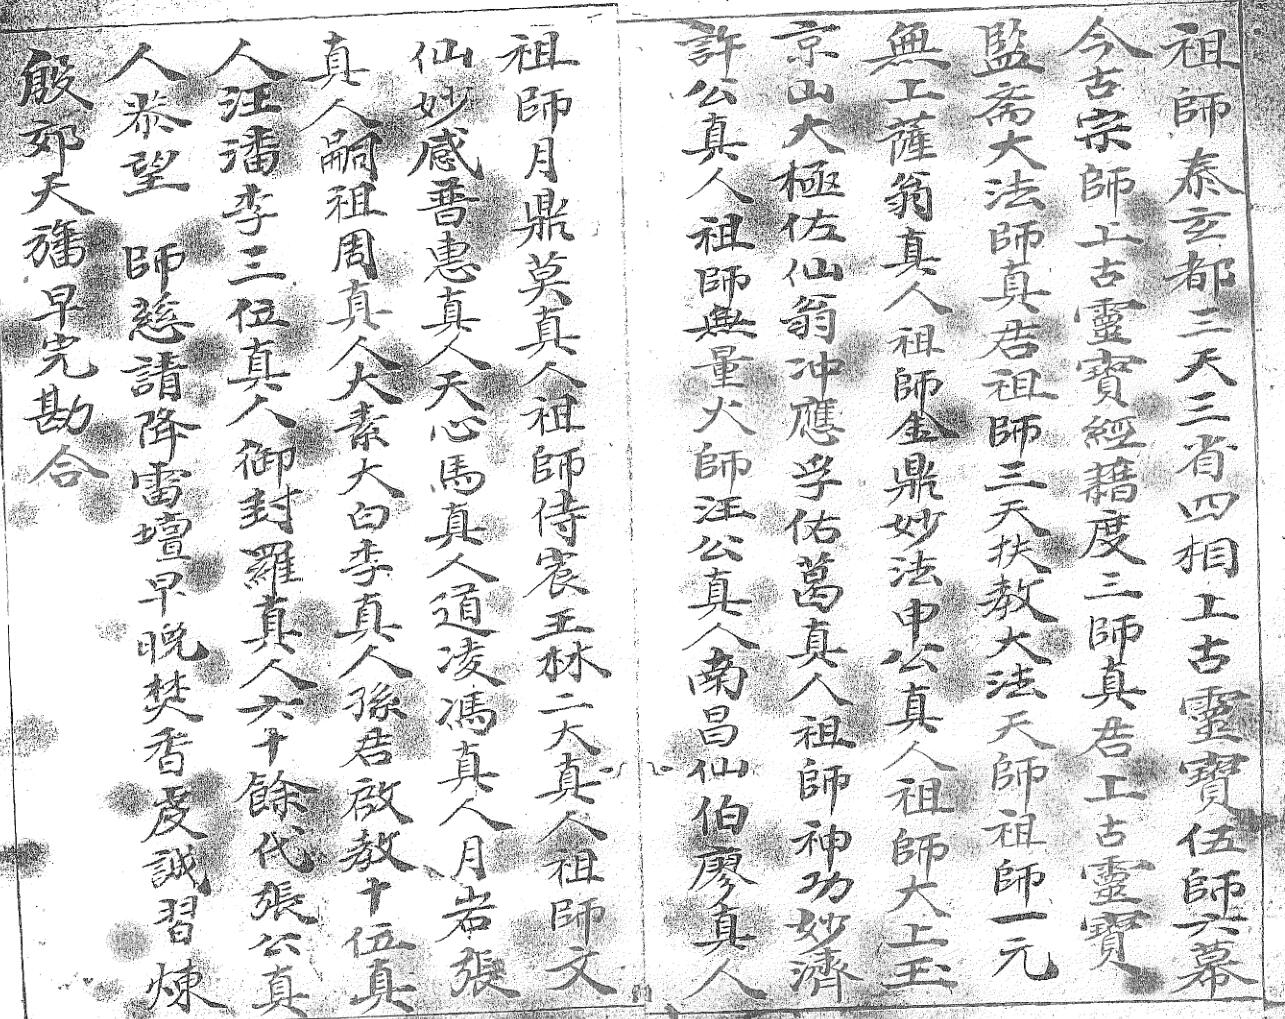 祖師泰玄都三天三省四相上古靈寶伍師六幕
今古宗師上古靈寶經籍度三師真君上古靈寶
監斋大法師真君祖師三天扶教大法天師祖師一元
無上薩翁真人祖師金鼎妙法申公真人祖師大上玉
京山大極佐仙翁冲應孚佑葛真人祖師神功妙濟
許公真人祖師無量火師汪公真人南昌仙伯廖真人
祖師月鼎莫真人祖師侍宸王林二大真人祖師文
仙妙感普惠真人天心馬真人道凌馮真人月岩張
真人嗣祖周真人大素大白李真人孫君啟教十伍真
人汪潘李三位真人御封羅真人六十餘代張公真
人恭望 師慈請降雷壇早晚焚香虔誠習煉
殷郊天旛早完勘合